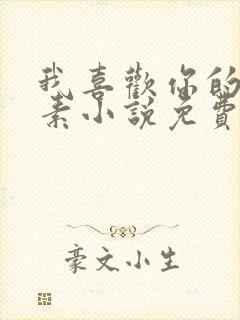 我喜歡你的
素小說免費
豪文小生